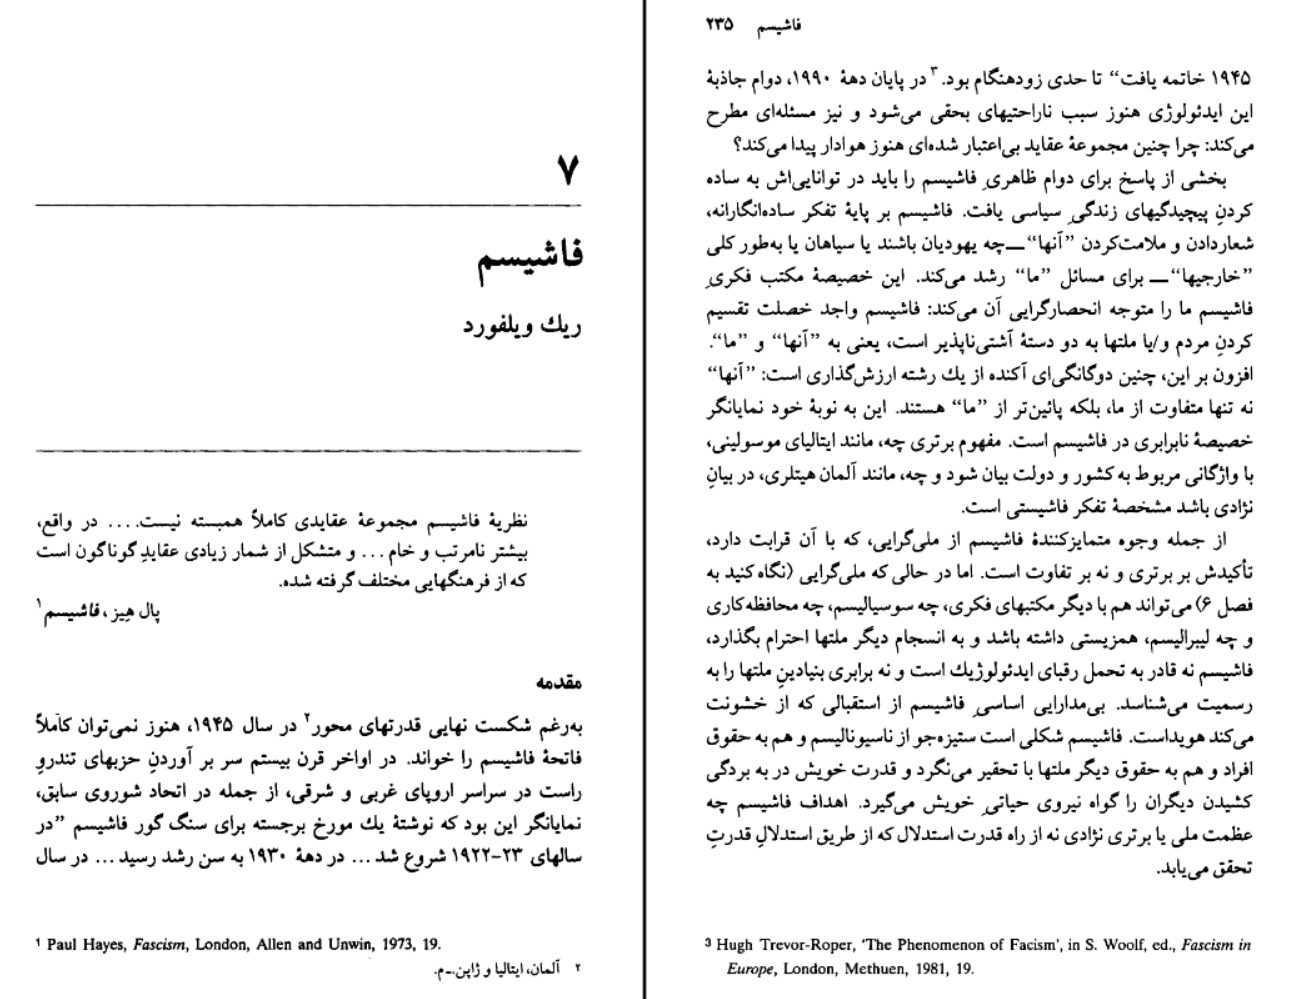 ۷
فاشیسم
ریك ویلفورد
نظریهٔ فاشیسم مجموعهٔ عقایدی کاملاً همبسته نیست.... در واقع،
بیشتر نامرتب و خام ... و متشکل از شمار زیادی عقایدِ گوناگون است
که از فرهنگهایی مختلف گرفته شده.
پال هِیز، فاشیسم۱
مقدمه
به‌رغم شکست نهایی قدرتهای محور۲ در سال ۱۹۴۵، هنوز نمی‌توان کاملاً
فاتحهٔ فاشیسم را خواند. در اواخر قرن بیستم سر بر آوردنِ حزبهای تندروِ
راست در سراسر اروپای غربی و شرقی، از جمله در اتحاد شوروی سابق،
نمایانگر این بود که نوشتهٔ یك مورخ برجسته برای سنگ گور فاشیسم ”در
سالهای ۲۳–۱۹۲۲ شروع شد ... در دههٔ ۱۹۳۰ به سن رشد رسید ... در سال
1 Paul Hayes, Fascism, London, Allen and Unwin, 1973, 19.
۲ آلمان، ایتالیا و ژاپن.ـ‌م.
فاشیسم ۲۳۵
۱۹۴۵ خاتمه یافت“ تا حدی زودهنگام بود.۳ در پایان دههٔ ۱۹۹۰، دوام جاذبهٔ
این ایدئولوژی هنوز سبب ناراحتیهای بحقی می‌شود و نیز مسئله‌ای مطرح
می‌کند: چرا چنین مجموعهٔ عقاید بی‌اعتبار شده‌ای هنوز هوادار پیدا می‌کند؟
بخشی از پاسخ برای دوام ظاهریِ فاشیسم را باید در توانایی‌اش به ساده
کردنِ پیچیدگیهای زندگیِ سیاسی یافت. فاشیسم بر پایهٔ تفکر ساده‌انگارانه،
شعاردادن و ملامت‌کردن ”آنها“ــچه یهودیان باشند یا سیاهان یا به‌طور کلی
”خارجیها“ــ برای مسائل ”ما“ رشد می‌کند. این خصیصهٔ مکتب فکریِ
فاشیسم ما را متوجه انحصارگرایی آن می‌کند: فاشیسم واجد خصلت تقسیم
کردنِ مردم و/یا ملتها به دو دستهٔ آشتی‌ناپذیر است، یعنی به ”آنها“ و ”ما“.
افزون بر این، چنین دوگانگی‌ای آکنده از یك رشته ارزش‌گذاری است: ”آنها“
نه تنها متفاوت از ما، بلکه پائین‌تر از ”ما“ هستند. این به نوبهٔ خود نمایانگر
خصیصهٔ نابرابری در فاشیسم است. مفهوم برتری چه، مانند ایتالیای موسولینی،
با واژگانی مربوط به کشور و دولت بیان شود و چه، مانند آلمان هیتلری، در بیانِ
نژادی باشد مشخصهٔ تفکر فاشیستی است.
از جمله وجوه متمایزکنندهٔ فاشیسم از ملی‌گرایی، که با آن قرابت دارد،
تأکیدش بر برتری و نه بر تفاوت است. اما در حالی که ملی‌گرایی (نگاه کنید به
فصل ۶) می‌تواند هم با دیگر مکتبهای فکری، چه سوسیالیسم، چه محافظه‌کاری
و چه لیبرالیسم، همزیستی داشته باشد و به انسجام دیگر ملتها احترام بگذارد،
فاشیسم نه قادر به تحمل رقبای ایدئولوژیك است و نه برابری بنیادینِ ملتها را به
رسمیت می‌شناسد. بی‌مدارایی اساسیِ فاشیسم از استقبالی که از خشونت
می‌کند هویداست. فاشیسم شکلی است ستیزه‌جو از ناسیونالیسم و هم به حقوق
افراد و هم به حقوق دیگر ملتها با تحقیر می‌نگرد و قدرت خویش در به بردگی
کشیدن دیگران را گواه نیروی حیاتیِ خویش می‌گیرد. اهداف فاشیسم چه
عظمت ملی یا برتری نژادی نه از راه قدرت استدلال که از طریق استدلالِ قدرتِ
تحقق می‌یابد.
3 Hugh Trevor-Roper, ‘The Phenomenon of Facism’, in S. Woolf, ed., Fascism in
Europe, London, Methuen, 1981, 19.